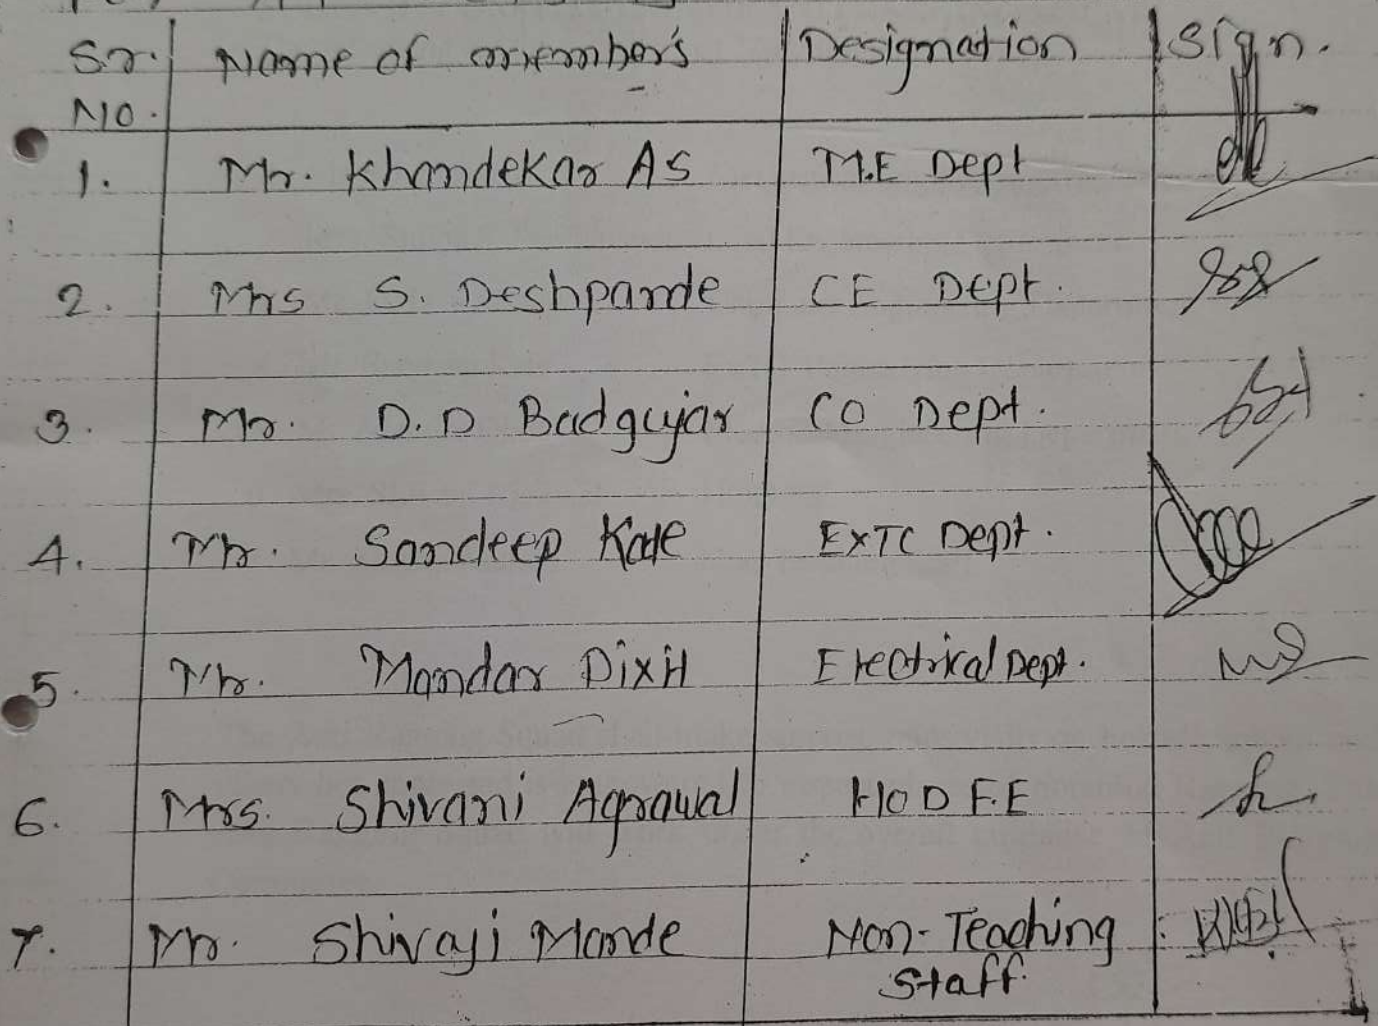 Sr. Name of member's Designation Sign.
No.
1. Mr. Khandekar A S M.E Dept
2. Mrs S. Deshpande CE Dept.
3. Mr. D. D Badgujar CO Dept.
4. Mr. Sandeep Kale EXTC Dept.
5. Mr. Mandar Dixit Electrical Dept.
6. Mrs. Shivani Agrawal HOD F.E
7. Mr. Shivaji Mande Non-Teaching
Staff.